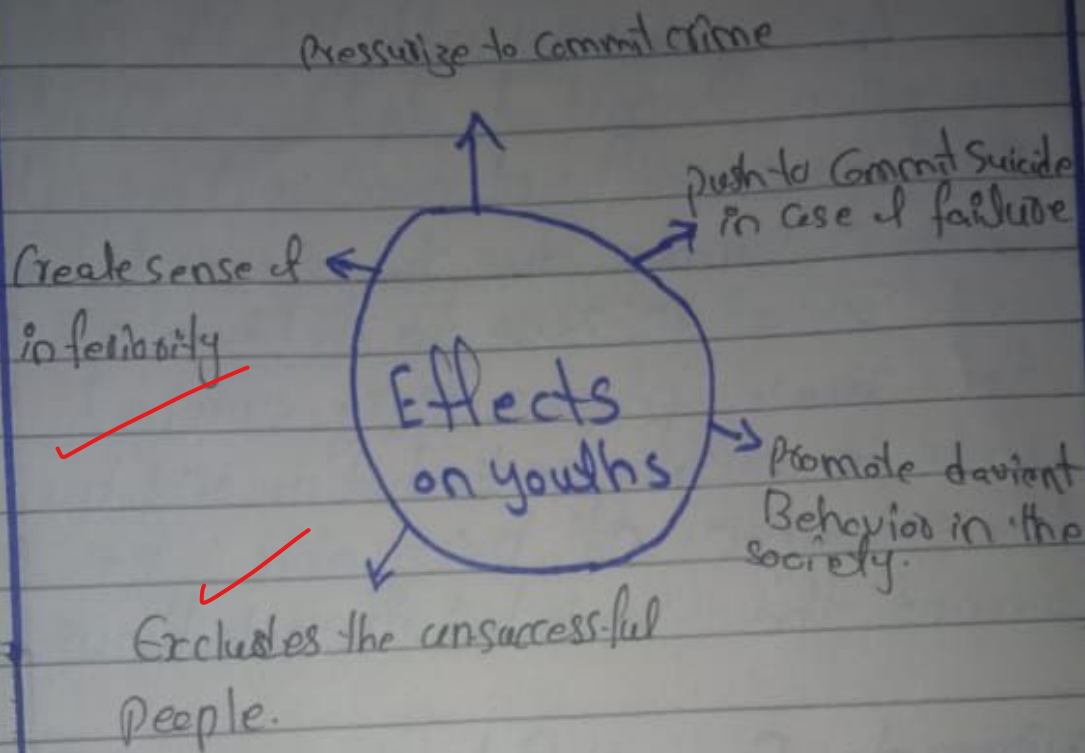 Pressurize to Commit crime
push to Commit Suicide
in case of failure
Create sense of
inferiority
Effects
on youths
Promote davient
Behavior in the
society.
Excludes the unsuccessful
People.